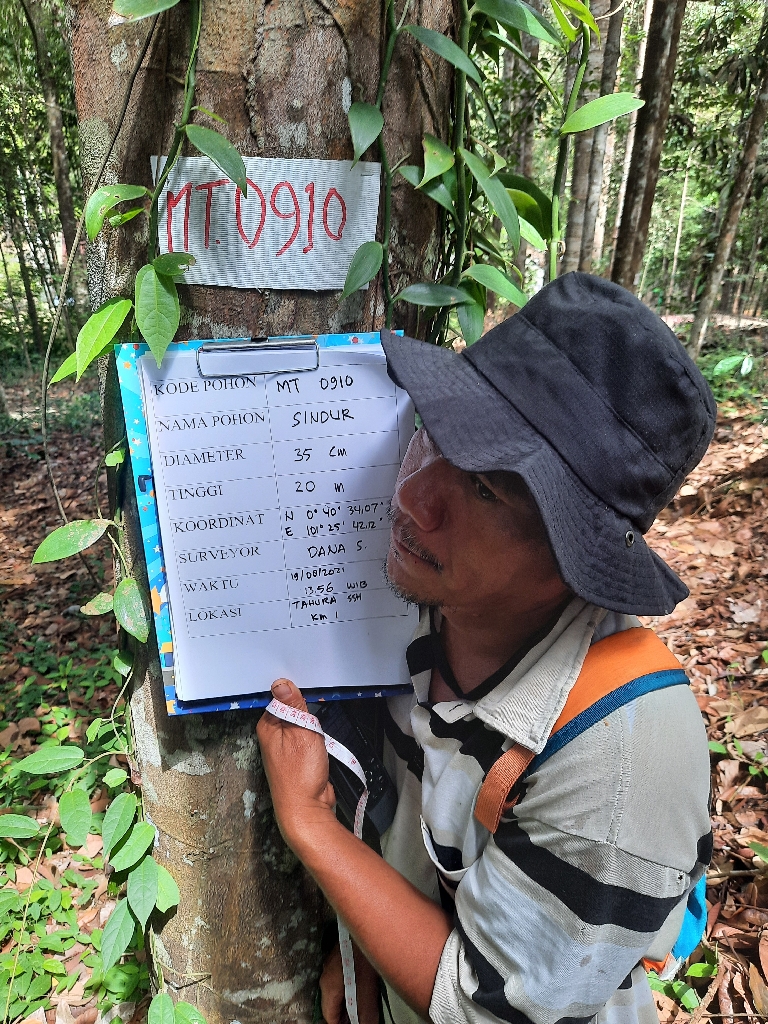 MT.0910
KODE POHON MT 0910
NAMA POHON SINDUR
DIAMETER 35 cm
TINGGI 20 m
KOORDINAT N 0° 40' 34,07"
E 101° 25' 42.12"
SURVEYOR DANA S.
WAKTU 19/08/2021
13:56 WIB
LOKASI TAHURA SSH
KM 1